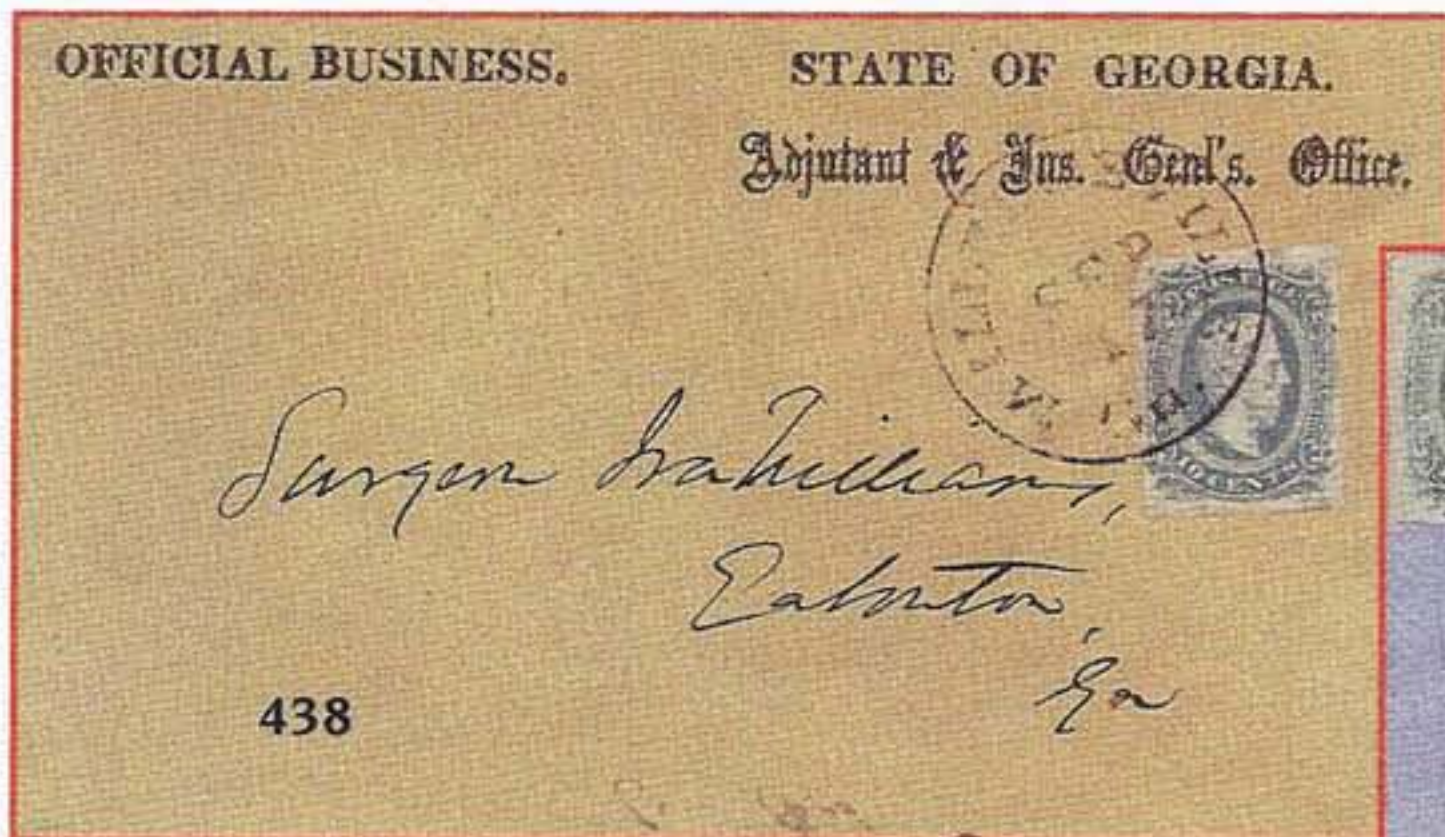 OFFICIAL BUSINESS.
STATE OF GEORGIA.
Adjutant & Ins. Genl's. Office.
Surgeon Ira Williams,
Eatonton,
Ga
438